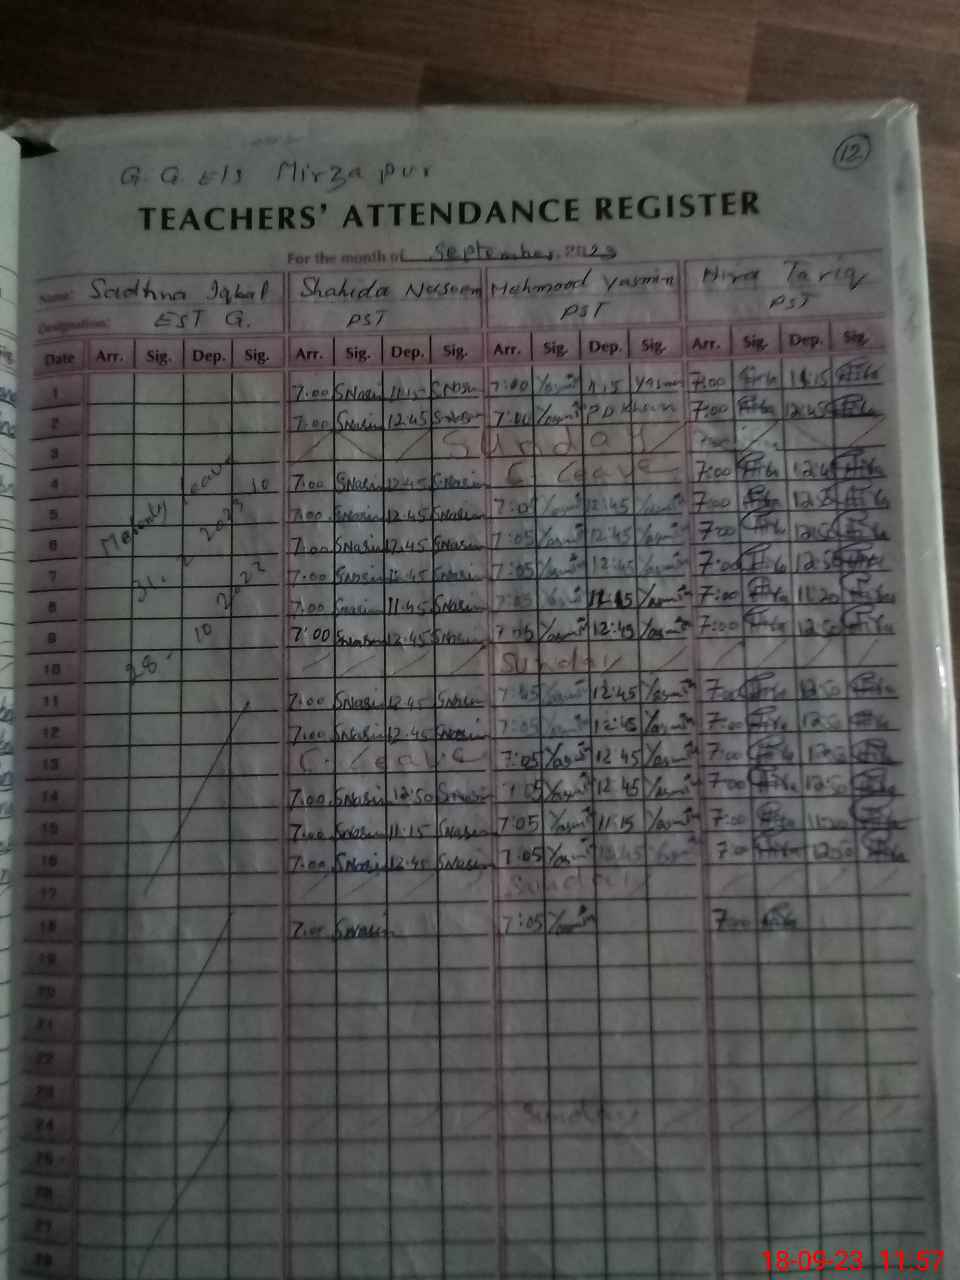 12
G. G. E/S Mirza pur
TEACHERS' ATTENDANCE REGISTER
For the month of September 2023
Name: Sadhna Iqbal Shahida Naseem Mehmood Yasmin Hira Tariq
Designation: EST G. PST PST PST
Date Arr. Sig. Dep. Sig. Arr. Sig. Dep. Sig. Arr. Sig. Dep. Sig. Arr. Sig. Dep. Sig.
1 7:00 SNasim 11:15 SNasim 7:00 Yasmin 11:15 Yasmin 7:00 11:15
2 7:00 SNasim 12:45 SNasim 7:00 Yasmin 7:00 12:45
3 Sunday
4 7:00 SNasim 12:45 SNasim C. Leave 7:00
5 7:00 SNasim 12:45 SNasim 7:05 Yasmin 12:45 Yasmin 7:00
6 7:00 SNasim 12:45 SNasim 7:05 Yasmin 12:45 Yasmin 7:00 12:50
7 7:00 SNasim 12:45 SNasim 7:05 Yasmin 12:45 Yasmin 7:00 12:50
8 7:00 SNasim 11:45 SNasim 7:05 Yasmin 11:15 Yasmin 7:00 11:20
9 7:00 SNasim 12:45 SNasim 7:05 Yasmin 12:45 Yasmin 7:00 12:50
10 Sunday
11 7:00 SNasim 12:45 SNasim 7:05 Yasmin 12:45 Yasmin 7:00 12:50
12 7:00 SNasim 12:45 SNasim 7:05 Yasmin 12:45 Yasmin 7:00 12:50
13 C. Leave 7:05 Yasmin 12:45 Yasmin 7:00
14 7:00 SNasim 12:50 SNasim 7:05 Yasmin 12:45 Yasmin 7:00 12:50
15 7:00 SNasim 11:15 SNasim 7:05 Yasmin 11:15 Yasmin 7:00 11:20
16 7:00 SNasim 12:45 SNasim 7:05 Yasmin 12:45 Yasmin 7:00 12:50
17 Sunday
18 7:00 SNasim 7:05 Yasmin 7:00
19
20
21
22
23
24 Sunday
25
26
27
28
18-09-23 11:57